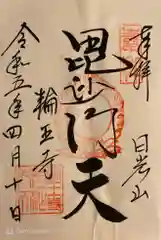 奉拝
日光山
毘沙門天
輪王寺
令和五年四月十日